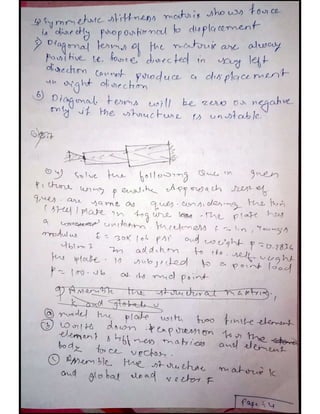 ④ Symmetric stiffness matrix shows force
is directly proportional to displacement
⑤ Diagonal terms of the matrix are always
positive ie. force directed in say left
direction cannot produce a displacement
in right direction
⑥ Diagonal terms will be zero or negative
only if the structure is unstable
Solve the following Que in given
picture using penalty approach rest of
ques. are same as ques. considering the thin
(steel) plate in figure. The plate has
a uniform thickness t = 1 in, Youngs
modulus E = 30 x 10^6 psi and weight ρ = 0.2836
lb/in^3 In addition to its self-weight
the plate is subjected to a point load
P = 100 lb at its mid point
a) Assemble the structural matrix,
K and global
ⓐ model the plate with two finite element
ⓑ write down expression for the
element stiffness matrices and element
body force vector.
ⓒ Assemble the structure matrix K
and global load vector F